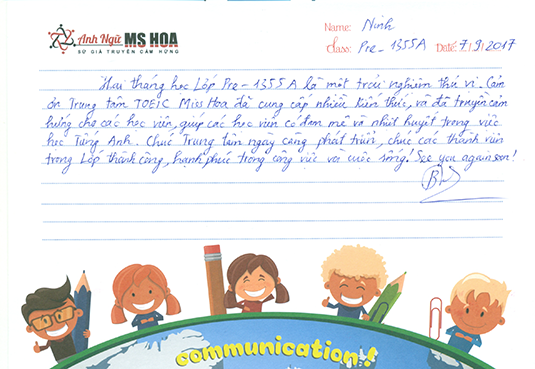 Anh Ngữ MS HOA
SỨ GIẢ TRUYỀN CẢM HỨNG
Name: Ninh
Class: Pre - 1355A Date: 7/9/2017
Hai tháng học Lớp Pre - 1355A là một trải nghiệm thú vị. Cảm
ơn Trung tâm TOEIC Miss Hoa đã cung cấp nhiều kiến thức, và đã truyền cảm
hứng cho các học viên, giúp các học viên có đam mê và nhiệt huyết trong việc
học Tiếng Anh. Chúc Trung tâm ngày càng phát triển, chúc các thành viên
trong Lớp thành công, hạnh phúc trong công việc và cuộc sống! See you again soon!
communication!